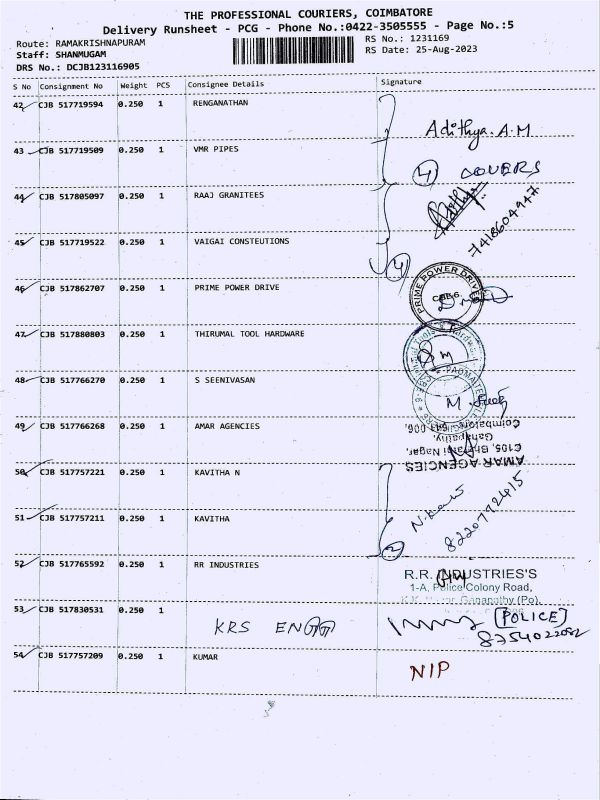 THE PROFESSIONAL COURIERS, COIMBATORE
Delivery Runsheet - PCG - Phone No.:0422-3505555 - Page No.:5
Route: RAMAKRISHNAPURAM RS No.: 1231169
Staff: SHANMUGAM RS Date: 25-Aug-2023
DRS No.: DCJB123116905
S No Consignment No Weight PCS Consignee Details Signature
42 CJB 517719594 0.250 1 RENGANATHAN
Adithya.A.M
43 CJB 517719509 0.250 1 VMR PIPES
4 COVERS
44 CJB 517805097 0.250 1 RAAJ GRANITEES
7418604947
45 CJB 517719522 0.250 1 VAIGAI CONSTEUTIONS
4
46 CJB 517862707 0.250 1 PRIME POWER DRIVE
PRIME POWER DRIVE
CBE-6
47 CJB 517880803 0.250 1 THIRUMAL TOOL HARDWARE
48 CJB 517766270 0.250 1 S SEENIVASAN
49 CJB 517766268 0.250 1 AMAR AGENCIES
AMAR AGENCIES
C105, Bharathi Nagar,
Ganapathy,
50 CJB 517757221 0.250 1 KAVITHA N
8220792415
51 CJB 517757211 0.250 1 KAVITHA
2
52 CJB 517765592 0.250 1 RR INDUSTRIES
R.R. INDUSTRIES'S
1-A, Police Colony Road,
Ganapathy (Po),
53 CJB 517830531 0.250 1
KRS ENGG
[POLICE]
8754022082
54 CJB 517757209 0.250 1 KUMAR
NIP